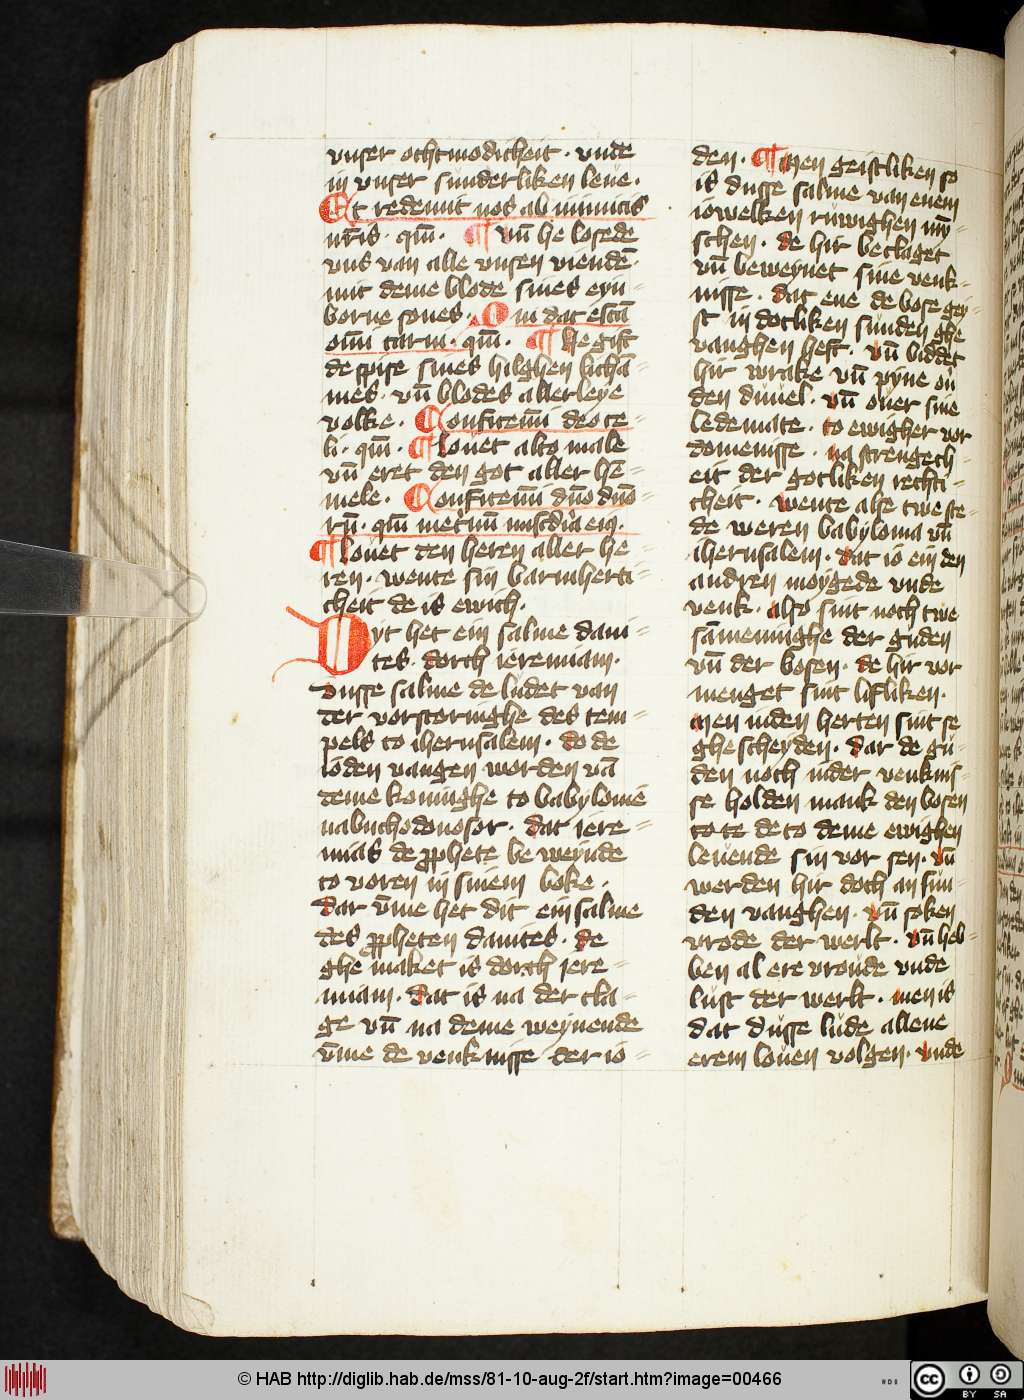 vnser othmodicheit · vnde
in vnser sunderliken leue ·
Et redemit nos ab inimicis
nr̄is · qm̄ · ¶ vn̄ he losede
vns van alle vnsen vienden̄
mit deme blode sines eyn=
borne sones · Qui dat escā
om̄i carni · qm̄ · ¶ he gift
de spise sines hilghen lichā=
mes · vn̄ blodes allerleye
volke · Confitem̄i deo ce=
li · qm̄ · ¶ Louet alto male
vn̄ eret den got aller he=
mele · Confitem̄i dn̄o dn̄o=
rū · qm̄ in et'num mis'dia ei9 ·
¶ Louet den heren aller he=
ren · wente sin barmherti=
cheit de is ewich ·
Dyt het ein salme daui=
tes · dorch ieremiam ·
dusse salme de ludet van
der vorstoringhe des tem=
pels to iherusalem · do de
ioden vangen worden vā
deme koninghe to babylonie
nabuchodonosor · dat iere=
mias de ꝓphete be weynde
to voren in sinem boke ·
dar v̄me het dit ein salme
des ꝓpheten dauites · de
ghe maket is dorch iere=
miam · dat is na der cla=
ge vn̄ na deme weynende
v̄me de venknisse der io=
den · ¶ Men geistliken so
is dusse salme van enem
iowelken ruwighen mȳ
schen · de hir beclaget
vn̄ beweynet sine venk=
nisse · dat ene de bose gei=
st in dotliken sunden ghe
vanghen heft · vn̄ biddet
hir wrake vn̄ pyne ou̇
den duuel · vn̄ ouer sine
ledemate · to ewigher vor
domenisse · na strengech=
eit der gotliken rechti=
cheit · wente alse twe ste=
de weren babylonia vn̄
iherusalem · dat io ein den
andren moygede vnde
venk · also sint noch twe
sāmeninghe der guden
vn̄ der bosen · de hir vor
menget sint lifliken ·
men in den herten sint se
ghescheyden · dar de gu=
den noch inder venknis=
se holden mank den bosen
to te de to deme ewighen
leuende sin vor sen · vn̄
werden hir doch an sun=
den vanghen · vn̄ soken
vrode der werlt · vn̄ heb=
ben al ere vroude vnde
lust der werlt · men is
dat dusse lude allene
erem louen volgen · vnde
© HAB http://diglib.hab.de/mss/81-10-aug-2f/start.htm?image=00466
BY SA